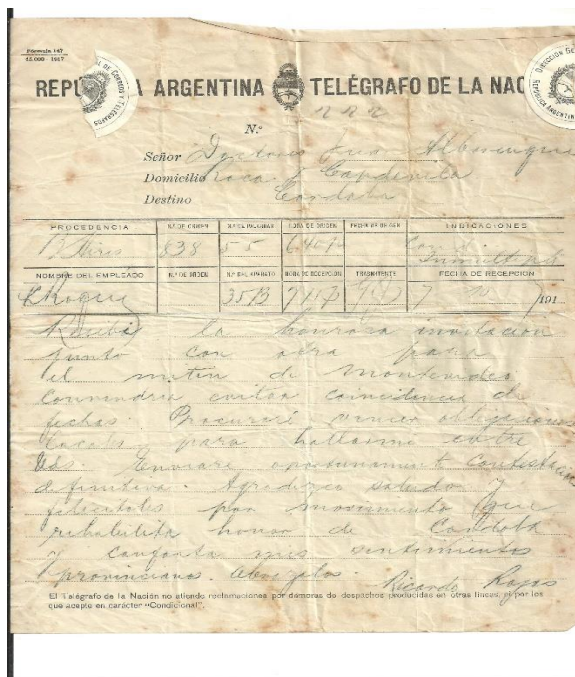 Fórmula 147
15.000 - 1917
REPÚ A ARGENTINA TELÉGRAFO DE LA NAC
DIRECCION GE
REPÚBLICA ARGENTINA
DE CORREOS Y TELÉGRAFOS
N.º
Señor Doctores
Domicilio Roca Capdevila
Destino Cordoba
PROCEDENCIA N.º DE ORDEN N.º DE PALABRAS HORA DE ORIGEN FECHA DE ORIGEN INDICACIONES
B Aires 838 55 6.40 P
NOMBRE DEL EMPLEADO N.º DE ORDEN N.º DEL APARATO HORA DE RECEPCIÓN TRASMITENTE FECHA DE RECEPCIÓN
35B 7 191
Recibi la honrosa invitacion
junto con otra para
el mitin de Montevideo
convendria evitar coincidencia de
fechas. Procuraré vencer obligaciones
locales para hallarme entre
Uds. Enviaré oportunamente contestacion
definitiva. Agradezco saludo y
felicitoles por movimiento que
rehabilita honor de Cordoba
y conforta mis sentimientos
provincianos. Abrazolos.
Ricardo Rojas
El Telégrafo de la Nación no atiende reclamaciones por demoras de despachos producidas en otras líneas, ni por los
que acepte en carácter "Condicional".